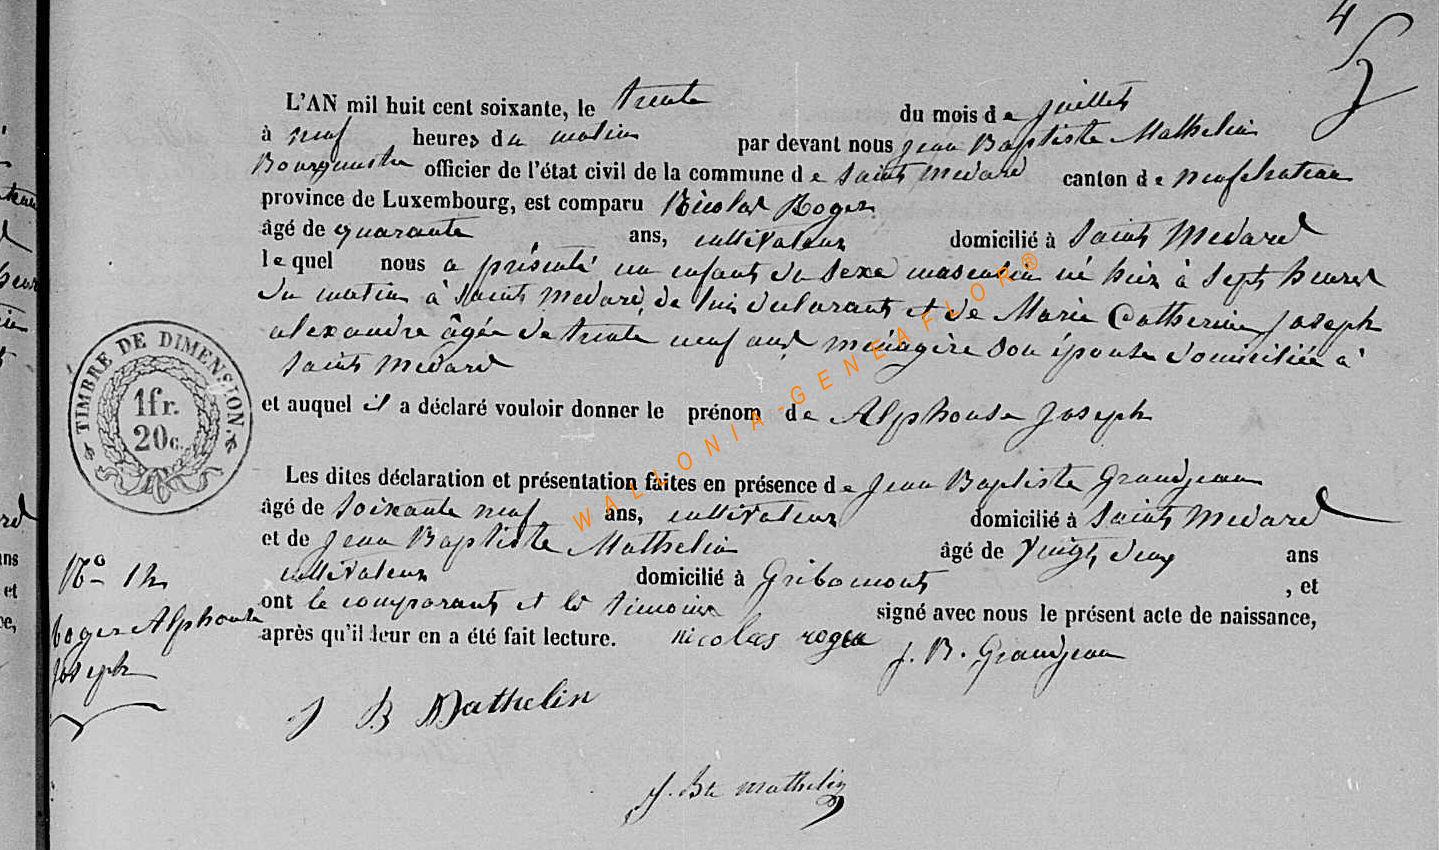 4
L'AN mil huit cent soixante, le trente du mois de juillet
à neuf heures du matin par devant nous jean Baptiste Mathelin
Bourgmestre officier de l'état civil de la commune de Saint Medard canton de neufchateau
province de Luxembourg, est comparu Nicolas Roger
âgé de quarante ans, cultivateur domicilié à Saint Medard
lequel nous a présenté un enfant du sexe masculin né hier à sept heures
du matin à Saint Medard, de lui declarant et de Marie Catherine Joseph
alexandre âgée de trente neuf ans, ménagère son épouse domiciliée à
Saint Medard
et auquel il a déclaré vouloir donner le prénom de Alphonse Joseph
Les dites déclaration et présentation faites en présence de Jean Baptiste Grandjean
âgé de Soixante neuf ans, cultivateur domicilié à Saint Medard
et de Jean Baptiste Mathelin âgé de Vingt deux ans
cultivateur domicilié à Gribomont , et
ont le comparant et les témoins signé avec nous le présent acte de naissance,
après qu'il leur en a été fait lecture. nicolas roger
J. B. Grandjean
J B Mathelin
J. Bte mathelin
TIMBRE DE DIMENSION.
1fr.
20c.
No 12
roger Alphonse
Joseph
WALLONIA-GENEAFLOR®